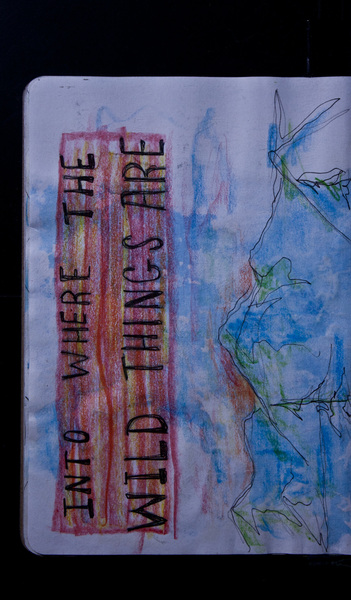 INTO WHERE THE
WILD THINGS ARE